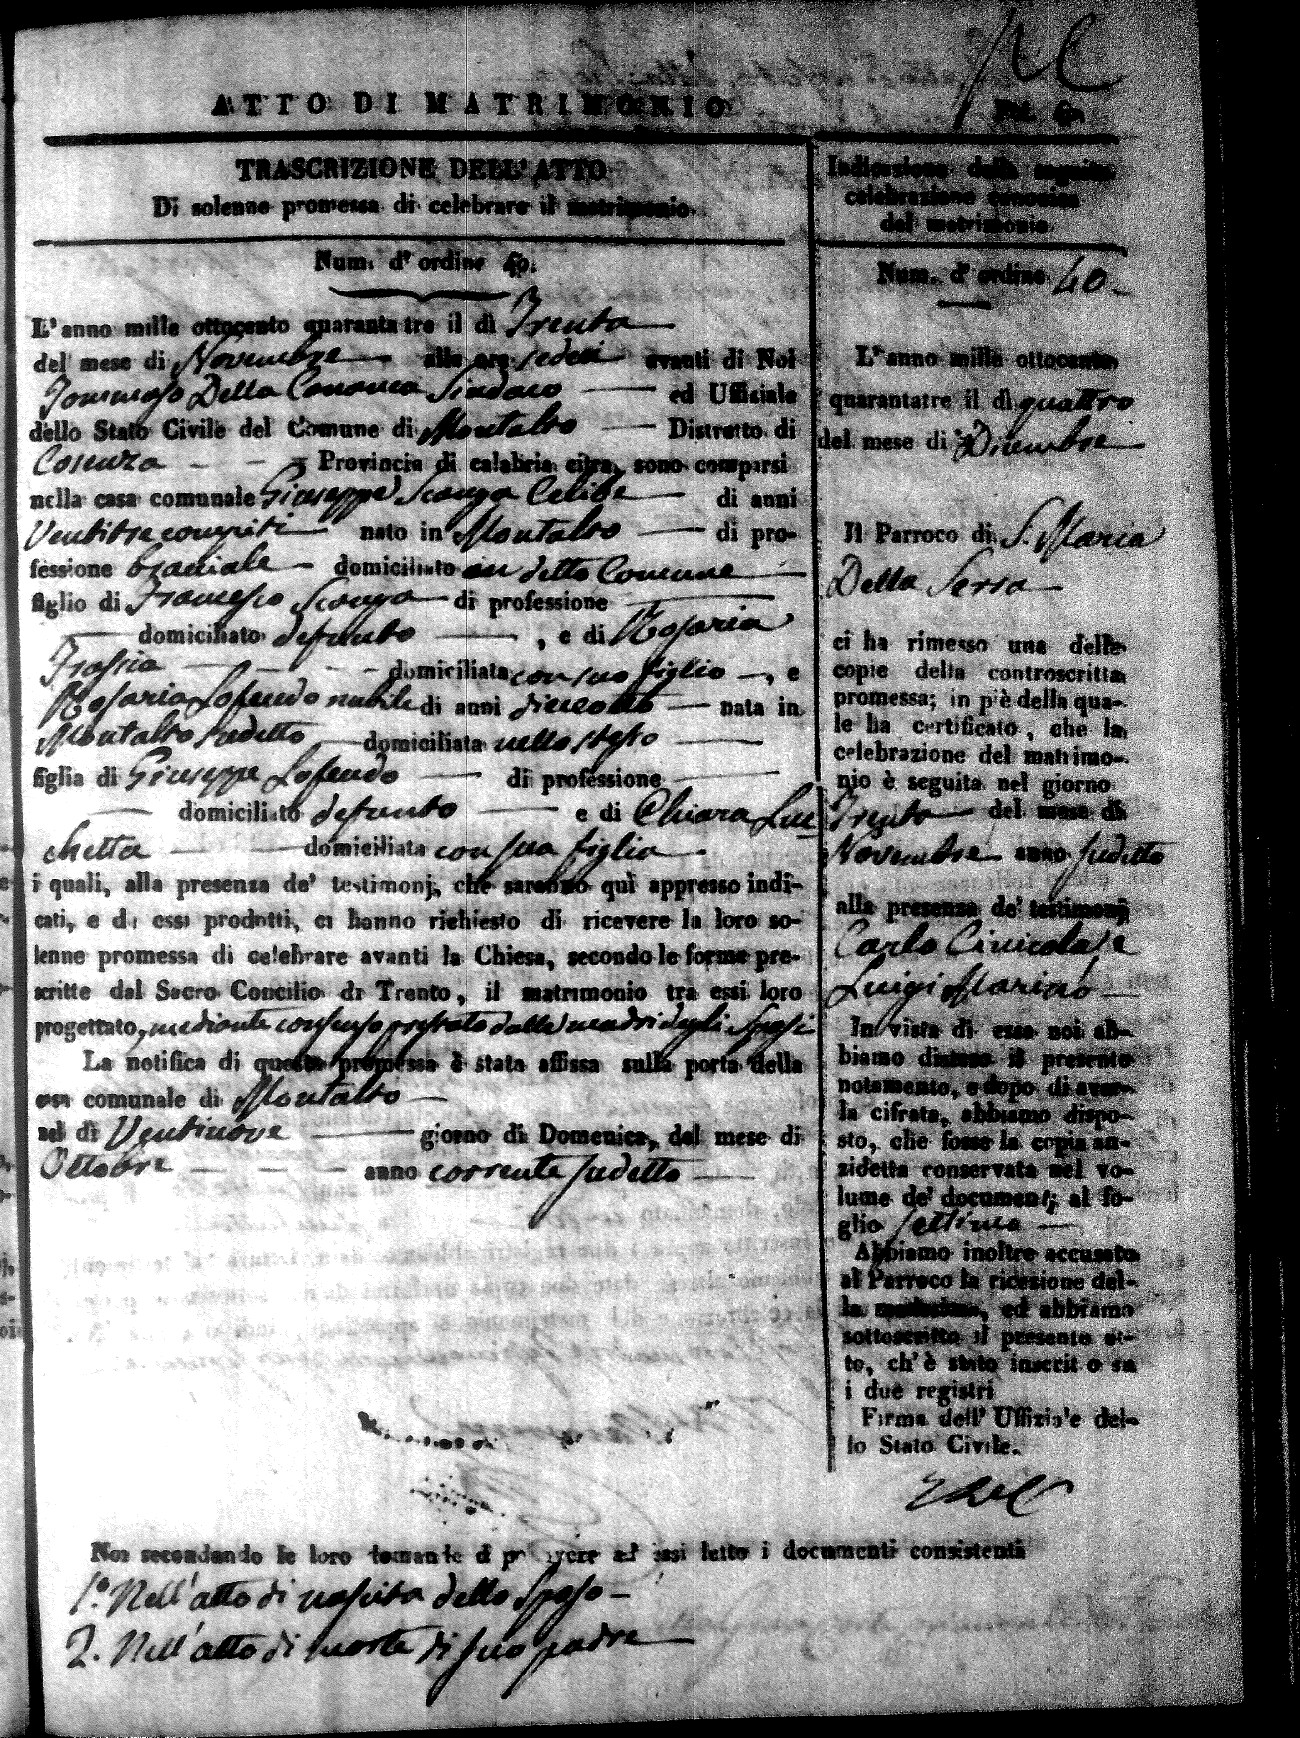 ATTO DI MATRIMONIO
TRASCRIZIONE DELL'ATTO
Di solenne promessa di celebrare il matrimonio
Num. d'ordine 40.
L'anno mille ottocento quarantatre il dì Trenta
del mese di Novembre alle ore sedeci avanti di Noi
Tommaso Della Cananea Sindaco ed Ufficiale
dello Stato Civile del Comune di Montalto Distretto di
Cosenza Provincia di calabria citra, sono comparsi
nella casa comunale Giuseppe Scanga Celibe di anni
Ventitre compiti nato in Montalto di pro-
fessione braciale domiciliato in detto Comune
figlio di Francesco Scanga di professione
domiciliato defunto , e di Rosaria
domiciliata con suo figlio , e
Rosaria Lofeudo nubile di anni dieciotto nata in
Montalto sudetto domiciliata nello stesso
figlia di Giuseppe Lofeudo di professione
domiciliato defunto e di Chiara Luc
chetta domiciliata con sua figlia
i quali, alla presenza de' testimonj, che saranno quì appresso indi-
cati, e da essi prodotti, ci hanno richiesto di ricevere la loro so-
lenne promessa di celebrare avanti la Chiesa, secondo le forme pre-
scritte dal Sacro Concilio di Trento, il matrimonio tra essi loro
progettato, mediante consenso prestato dalle madri degli Sposi
La notifica di questa promessa è stata affissa sulla porta della
casa comunale di Montalto
nel dì Ventinove giorno di Domenica, del mese di
Ottobre anno corrente sudetto
Indicazione della seguita
celebrazione canonica
del matrimonio
Num. d'ordine 40
L'anno mille ottocento
quarantatre il dì quattro
del mese di Dicembre
Il Parroco di S. Maria
Della Serra
ci ha rimesso una delle
copie della controscritta
promessa; in piè della qua-
le ha certificato, che la
celebrazione del matrimo-
nio è seguita nel giorno
Trenta del mese di
Novembre anno sudetto
alla presenza de' testimonj
Carlo e
Luigi Marinò
In vista di essa noi ab-
biamo disteso il presente
notamento, e dopo di aver-
la cifrata, abbiamo dispo-
sto, che fosse la copia an-
zidetta conservata nel vo-
lume de' documenti al fo-
glio settimo
Abbiamo inoltre accusato
al Parroco la ricezione del-
la medesima, ed abbiamo
sottoscritto il presente at-
to, ch'è stato inscritto su
i due registri
Firma dell' Uffizia'e del-
lo Stato Civile.
Noi secondando le loro domande di aver ad essi letto i documenti consistenti
1.° Nell'atto di nascita dello Sposo
2. Nell'atto di morte di suo padre